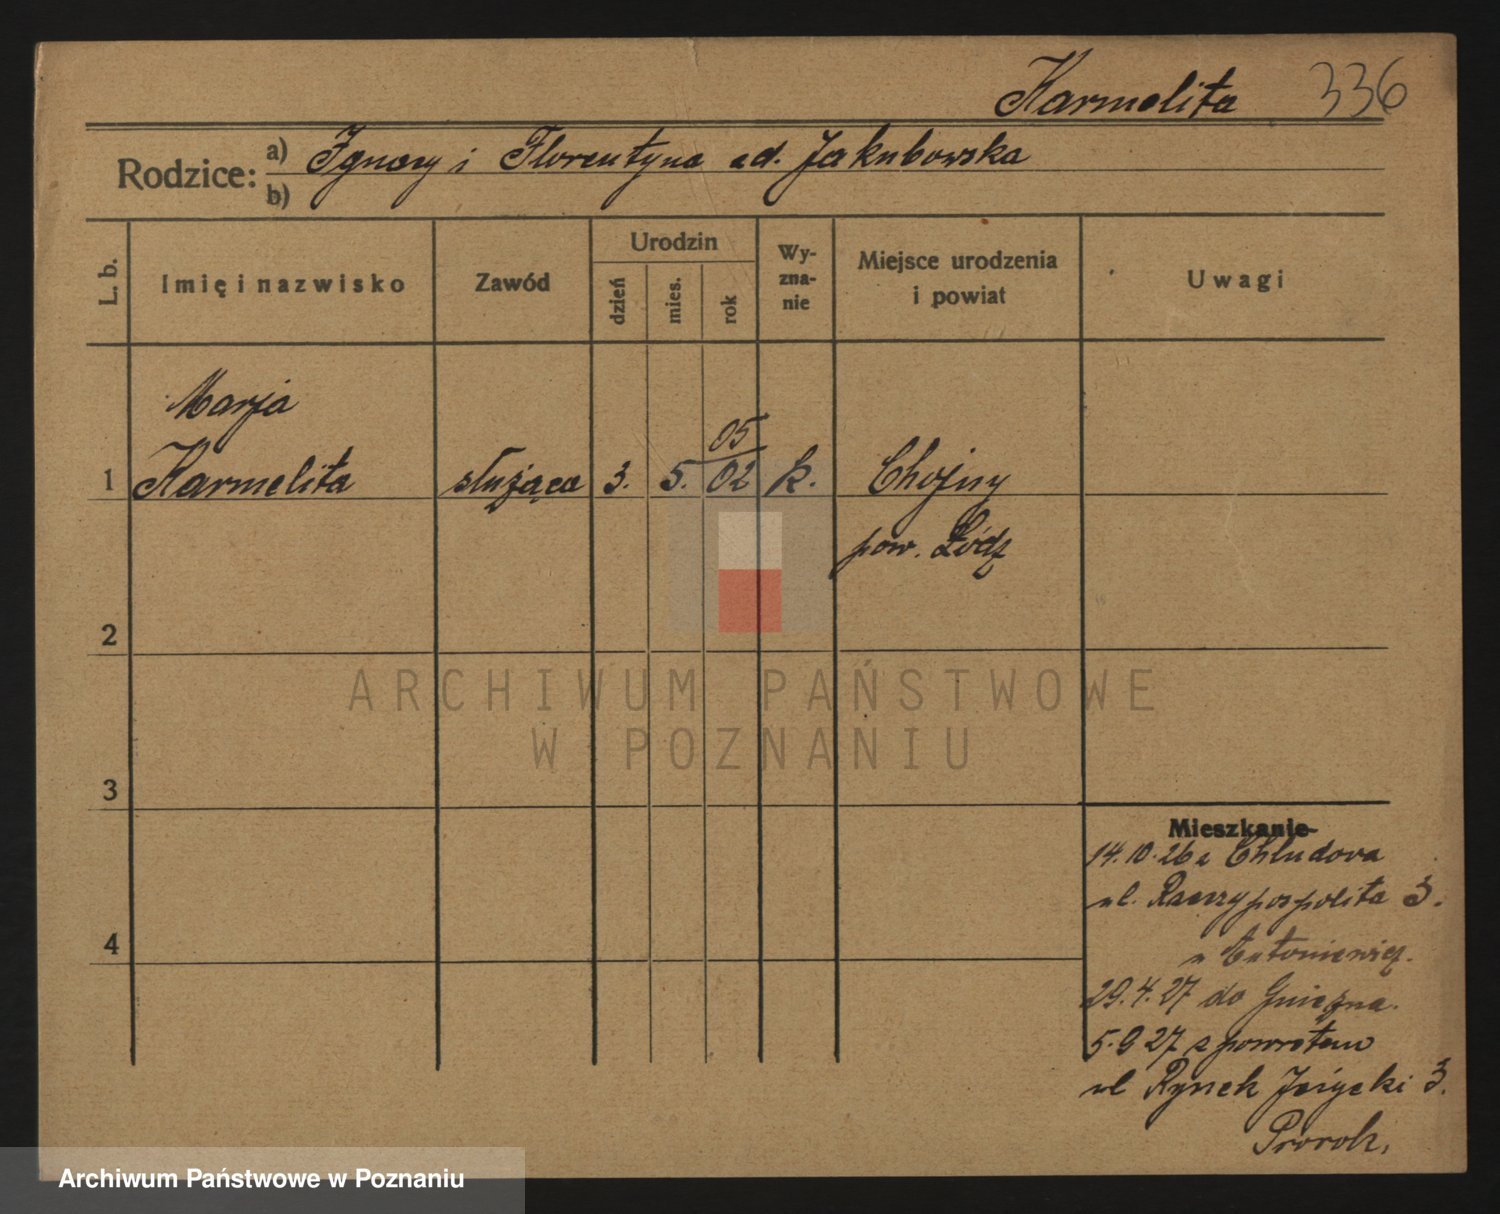 Karmelita 336
Rodzice: a) Ignacy i Florentyna zd. Jakubowska
b)
L. b. Imię i nazwisko Zawód Urodzin dzień mies. rok Wy-zna-nie Miejsce urodzenia i powiat Uwagi
Marja
05
1 Karmelita służąca 3. 5. 02 k. Chojny
pow. Łódź
2
ARCHIWUM PAŃSTWOWE
W POZNANIU
3
Mieszkanie
14.10.26 z Chludova
ul. Rzeczypospolita 3.
u Antoniewicz.
4
29.4.27 do Gniezna.
5.9 27 z powrotem
ul Rynek Jeżycki 3.
Prorok.
Archiwum Państwowe w Poznaniu